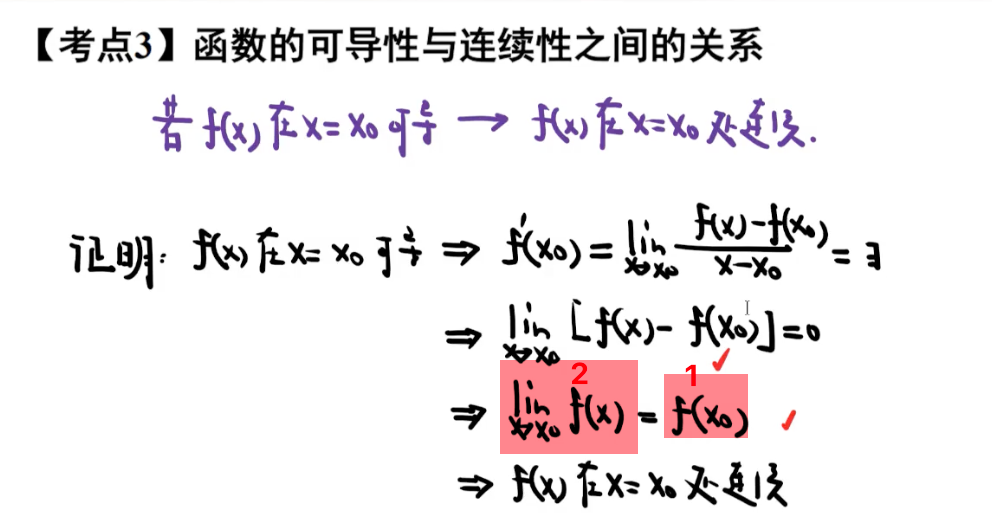 【考点3】函数的可导性与连续性之间的关系
若 f(x) 在 x=x₀ 可导 → f(x) 在 x=x₀ 处连续.
证明: f(x) 在 x=x₀ 可导 ⇒ f'(x₀) = lim_{x→x₀} (f(x)-f(x₀))/(x-x₀) = ∃
⇒ lim_{x→x₀} [f(x)-f(x₀)]=0
2 1
⇒ lim_{x→x₀} f(x) = f(x₀)
⇒ f(x) 在 x=x₀ 处连续